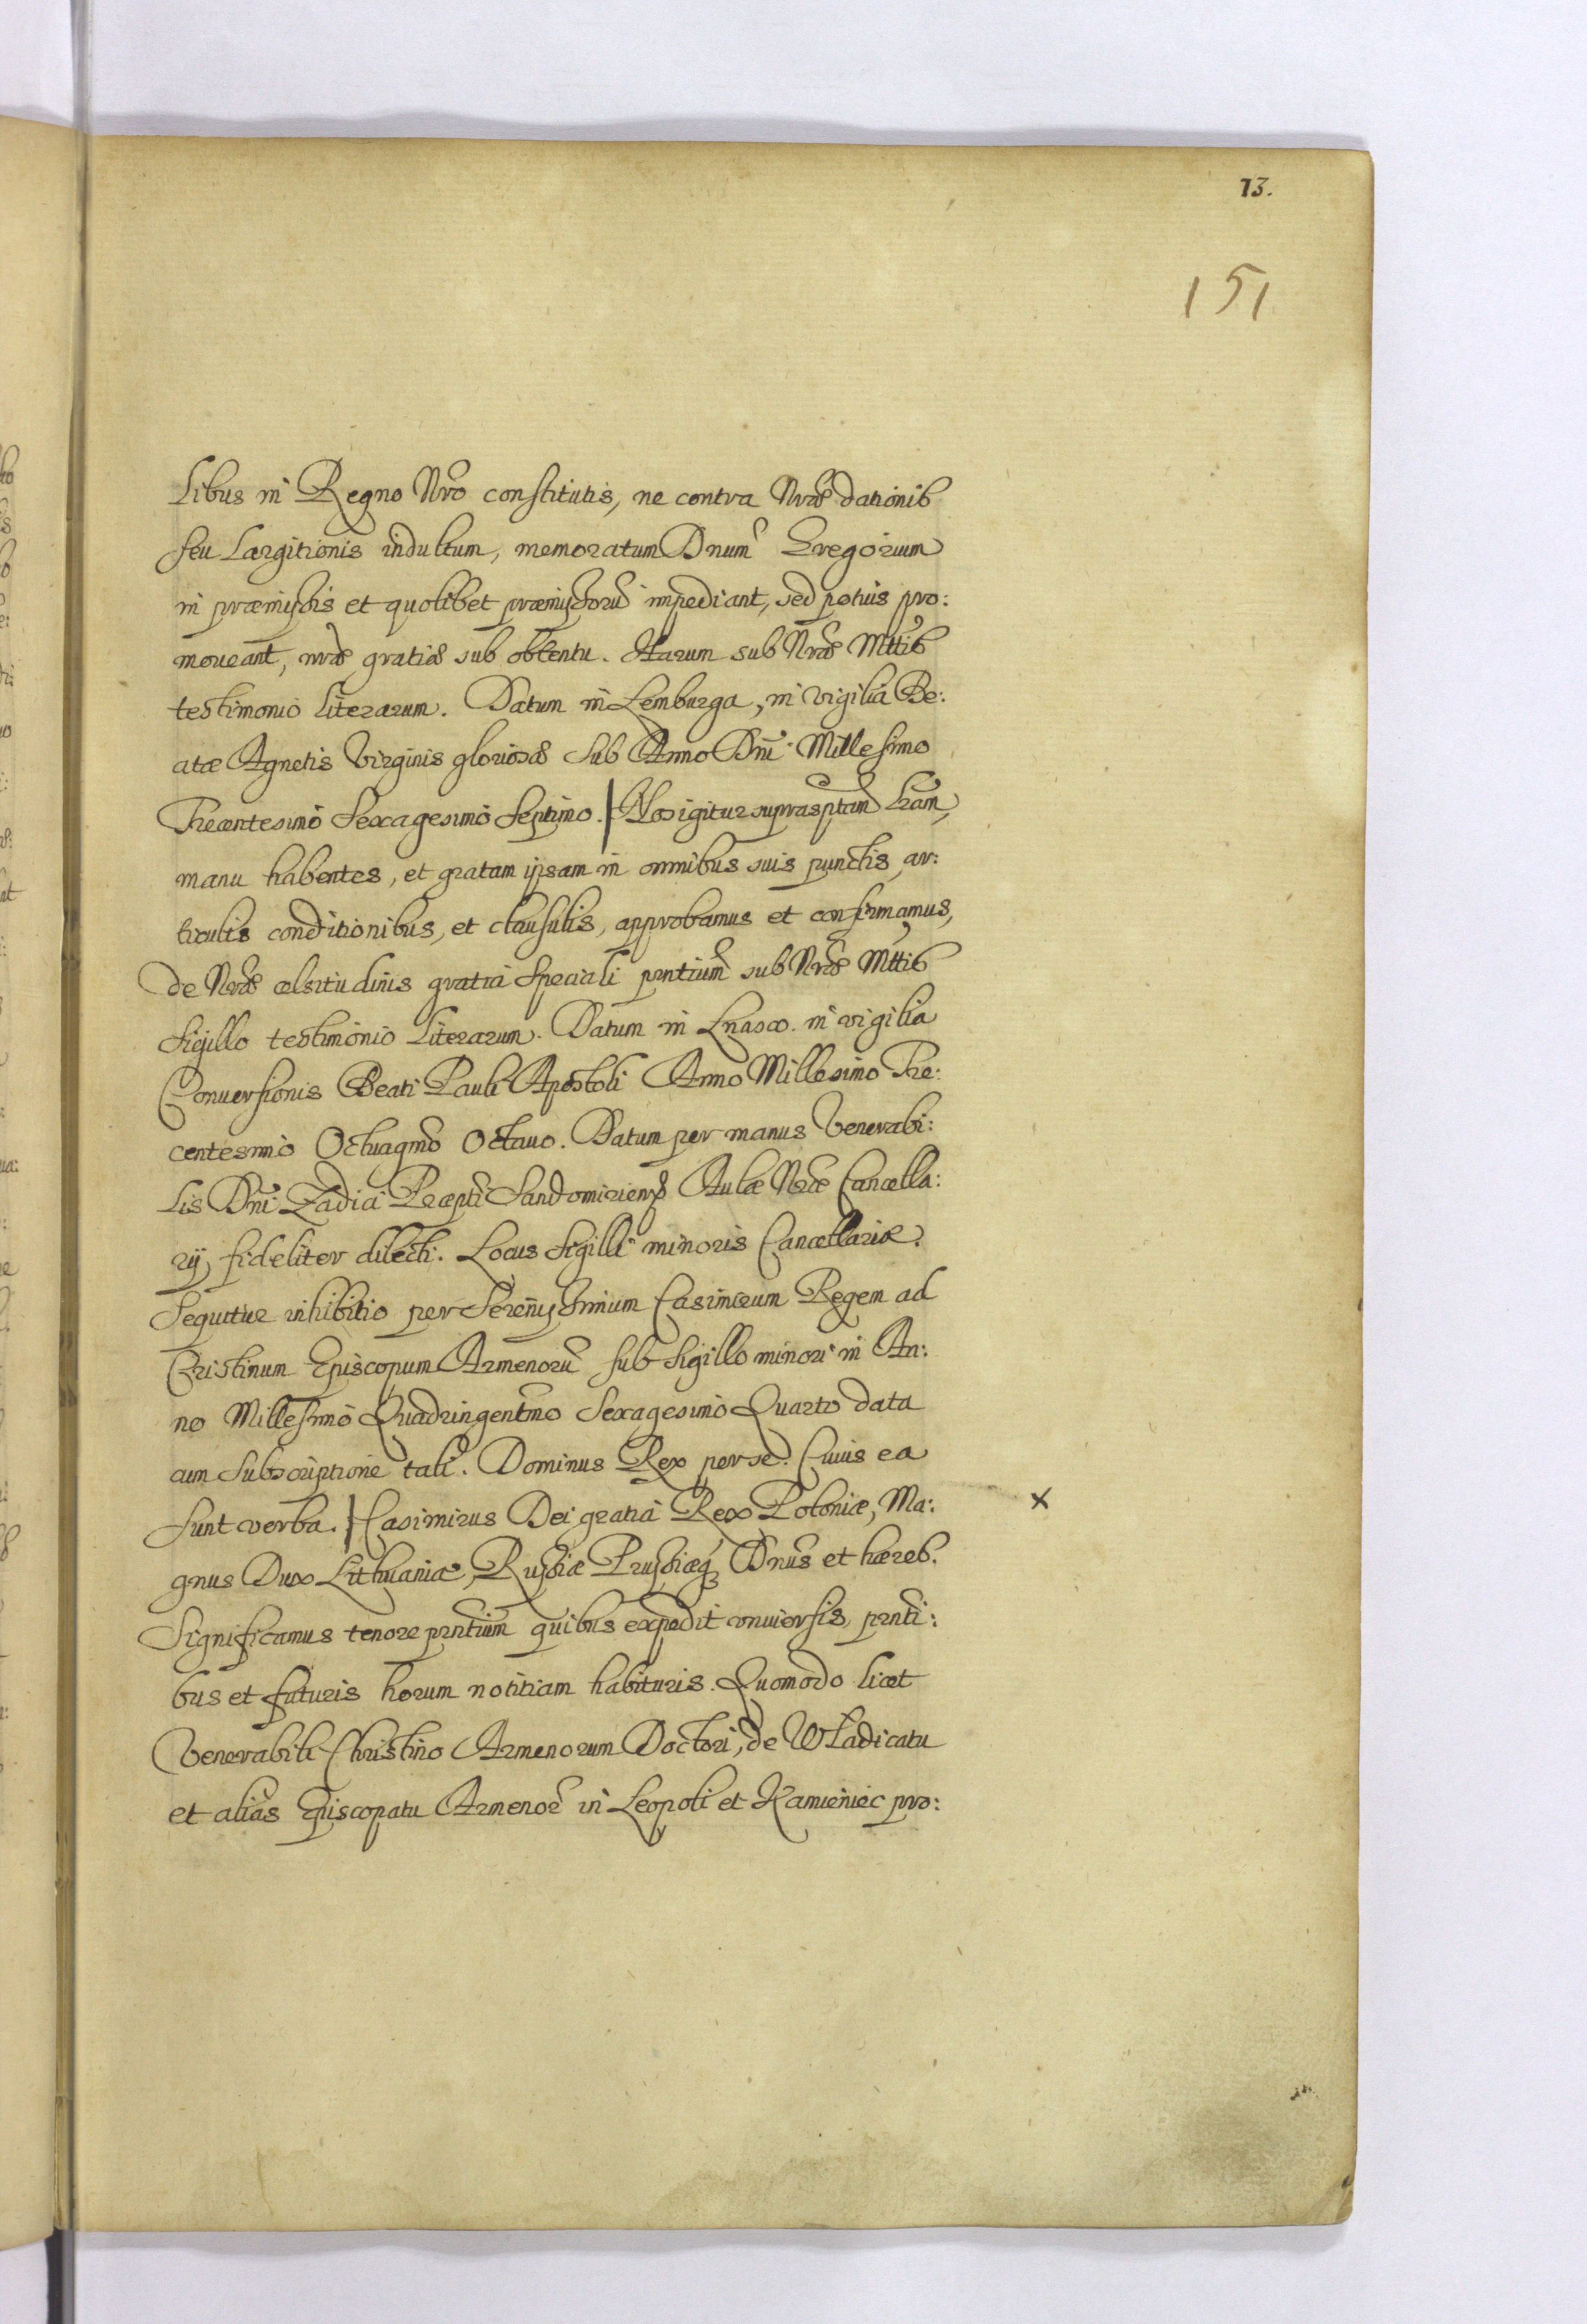 13.
151
libus in Regno Nro constitutis, ne contra Nræ dationis
seu Largitionis indultum, memoratum Dnum Gregorium
in præmissis et quolibet præmissorũ impediant, sed potius pro:
moueant, nræ gratiæ sub obtentu. Harum sub Nræ Mttis
testimonio literarum. Datum in Lemburga, in vigilia Be:
atæ Agnetis Virginis gloriosæ sub Anno Dni Millesimo
Trecentesimo Sexagesimo Septimo. | Nos igitur suprasptam Lram,
manu habentes, et gratam ipsam in omnibus suis punctis, ar:
ticulis conditionibus, et clausulis, approbamus et confirmamus,
de Nræ celsitudinis gratia speciali pntium sub Nræ Mttis
sigillo testimonio literarum. Datum in in vigilia
Conuersionis Beati Pauli Apostoli Anno Millesimo Tre:
centesimo Octuagmo Octauo. Datum per manus Venerabi:
lis Dni Zadici Præpti Sandomiriens Aulæ Nræ Cancella:
rij, fideliter dilecti. Locus Sigilli minoris Cancellariæ.
Sequitur inhibitio per Serenissimum Casimirum Regem ad
Cristinum Episcopum Armenorũ sub sigillo minori in An:
no Millesimo Quadringentmo Sexagesimo Quarto data
cum subscriptione tali. Dominus Rex per se. Cuius ea
sunt verba. | Casimirus Dei gratia Rex Poloniæ, Ma: x
gnus Dux Lithuaniæ, Russiæ Prussiæq; Dnus et hæres.
Significamus tenore pntium quibus expedit vniuersis, pnti:
bus et futuris horum notitiam habituris. Quomodo licet
Venerabili Christino Armenorum Doctori, de Wladicatu
et alias Episcopatu Armenor in Leopoli et Kamieniec pro: